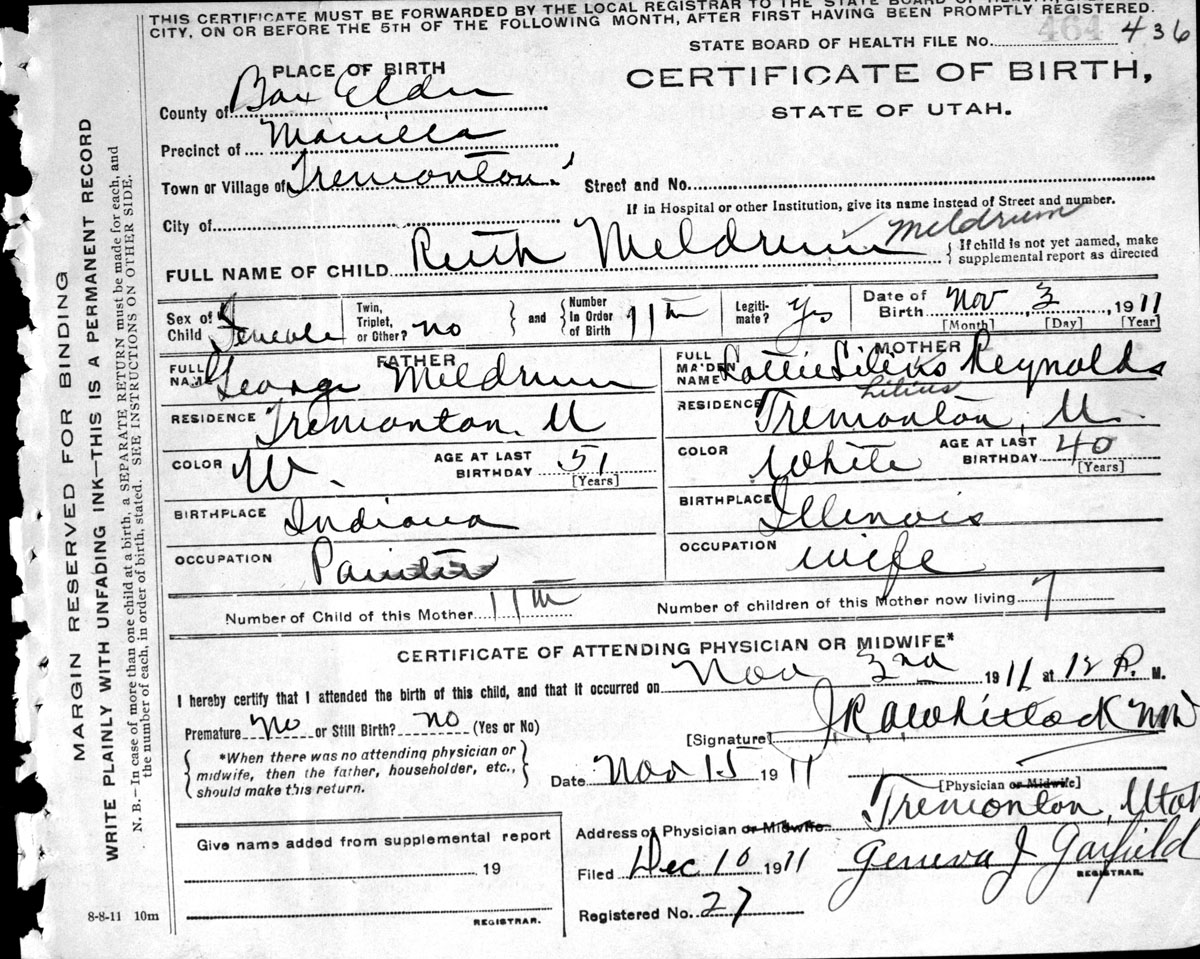 THIS CERTIFICATE MUST BE FORWARDED BY THE LOCAL REGISTRAR TO THE STATE BOARD OF HEALTH,
CITY, ON OR BEFORE THE 5TH OF THE FOLLOWING MONTH, AFTER FIRST HAVING BEEN PROMPTLY REGISTERED.
STATE BOARD OF HEALTH FILE No. 464 436
PLACE OF BIRTH
CERTIFICATE OF BIRTH,
STATE OF UTAH.
County of Box Elder
Precinct of Manilla
Town or Village of Tremonton Street and No.
If in Hospital or other Institution, give its name instead of Street and number.
City of
FULL NAME OF CHILD Ruth Meldrum Meldrum { If child is not yet named, make supplemental report as directed
Sex of Child Female Twin, Triplet, or Other? no } and { Number in Order of Birth 11th Legiti-mate? Yes Date of Birth Nov 3, 1911
[Month] [Day] [Year]
FATHER
FULL NAME George Meldrum
RESIDENCE Tremonton. U
COLOR W. AGE AT LAST BIRTHDAY 51
[Years]
BIRTHPLACE Indiana
OCCUPATION Painter
MOTHER
FULL MAIDEN NAME Lottie Reynolds
Lilius
RESIDENCE Tremonton, U.
COLOR White AGE AT LAST BIRTHDAY 40
[Years]
BIRTHPLACE Illinois
OCCUPATION wife
Number of Child of this Mother 11th Number of children of this Mother now living 7
CERTIFICATE OF ATTENDING PHYSICIAN OR MIDWIFE*
I hereby certify that I attended the birth of this child, and that it occurred on Nov 1911 at 12 P. M.
Premature No or Still Birth? no (Yes or No)
[Signature] Whitlock MD
{ *When there was no attending physician or
midwife, then the father, householder, etc.,
should make this return. }
Date Nov 15 1911
[Physician or Midwife]
Address of Physician or Midwife Tremonton, Utah
Filed Dec 10 1911 Geneva J Garfield
REGISTRAR.
Registered No. 27
Give name added from supplemental report
19
REGISTRAR.
8-8-11 10m
MARGIN RESERVED FOR BINDING
WRITE PLAINLY WITH UNFADING INK—THIS IS A PERMANENT RECORD
N. B.—In case of more than one child at a birth, a SEPARATE RETURN must be made for each, and
the number of each, in order of birth, stated. SEE INSTRUCTIONS ON OTHER SIDE.